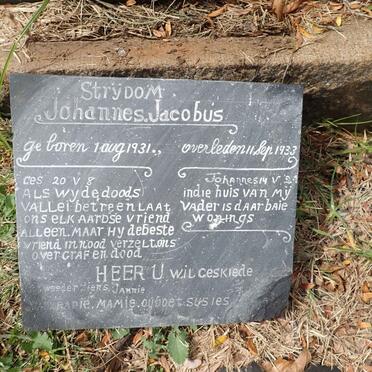 Strydom
Johannes Jacobus
geboren 1 aug 1931., overleden 11 Sep 1933
Ges 20 V 8
Als wy de doods
vallei betreen laat
ons elk aardse vriend
alleen. Maar Hy de beste
vriend in nood verzelt ons
over graf en dood
Johannes 14 V 2
in die huis van my
vader is daar baie
wonings
HEER U wil geskiede
Jannie
Mamie, ouboet susies